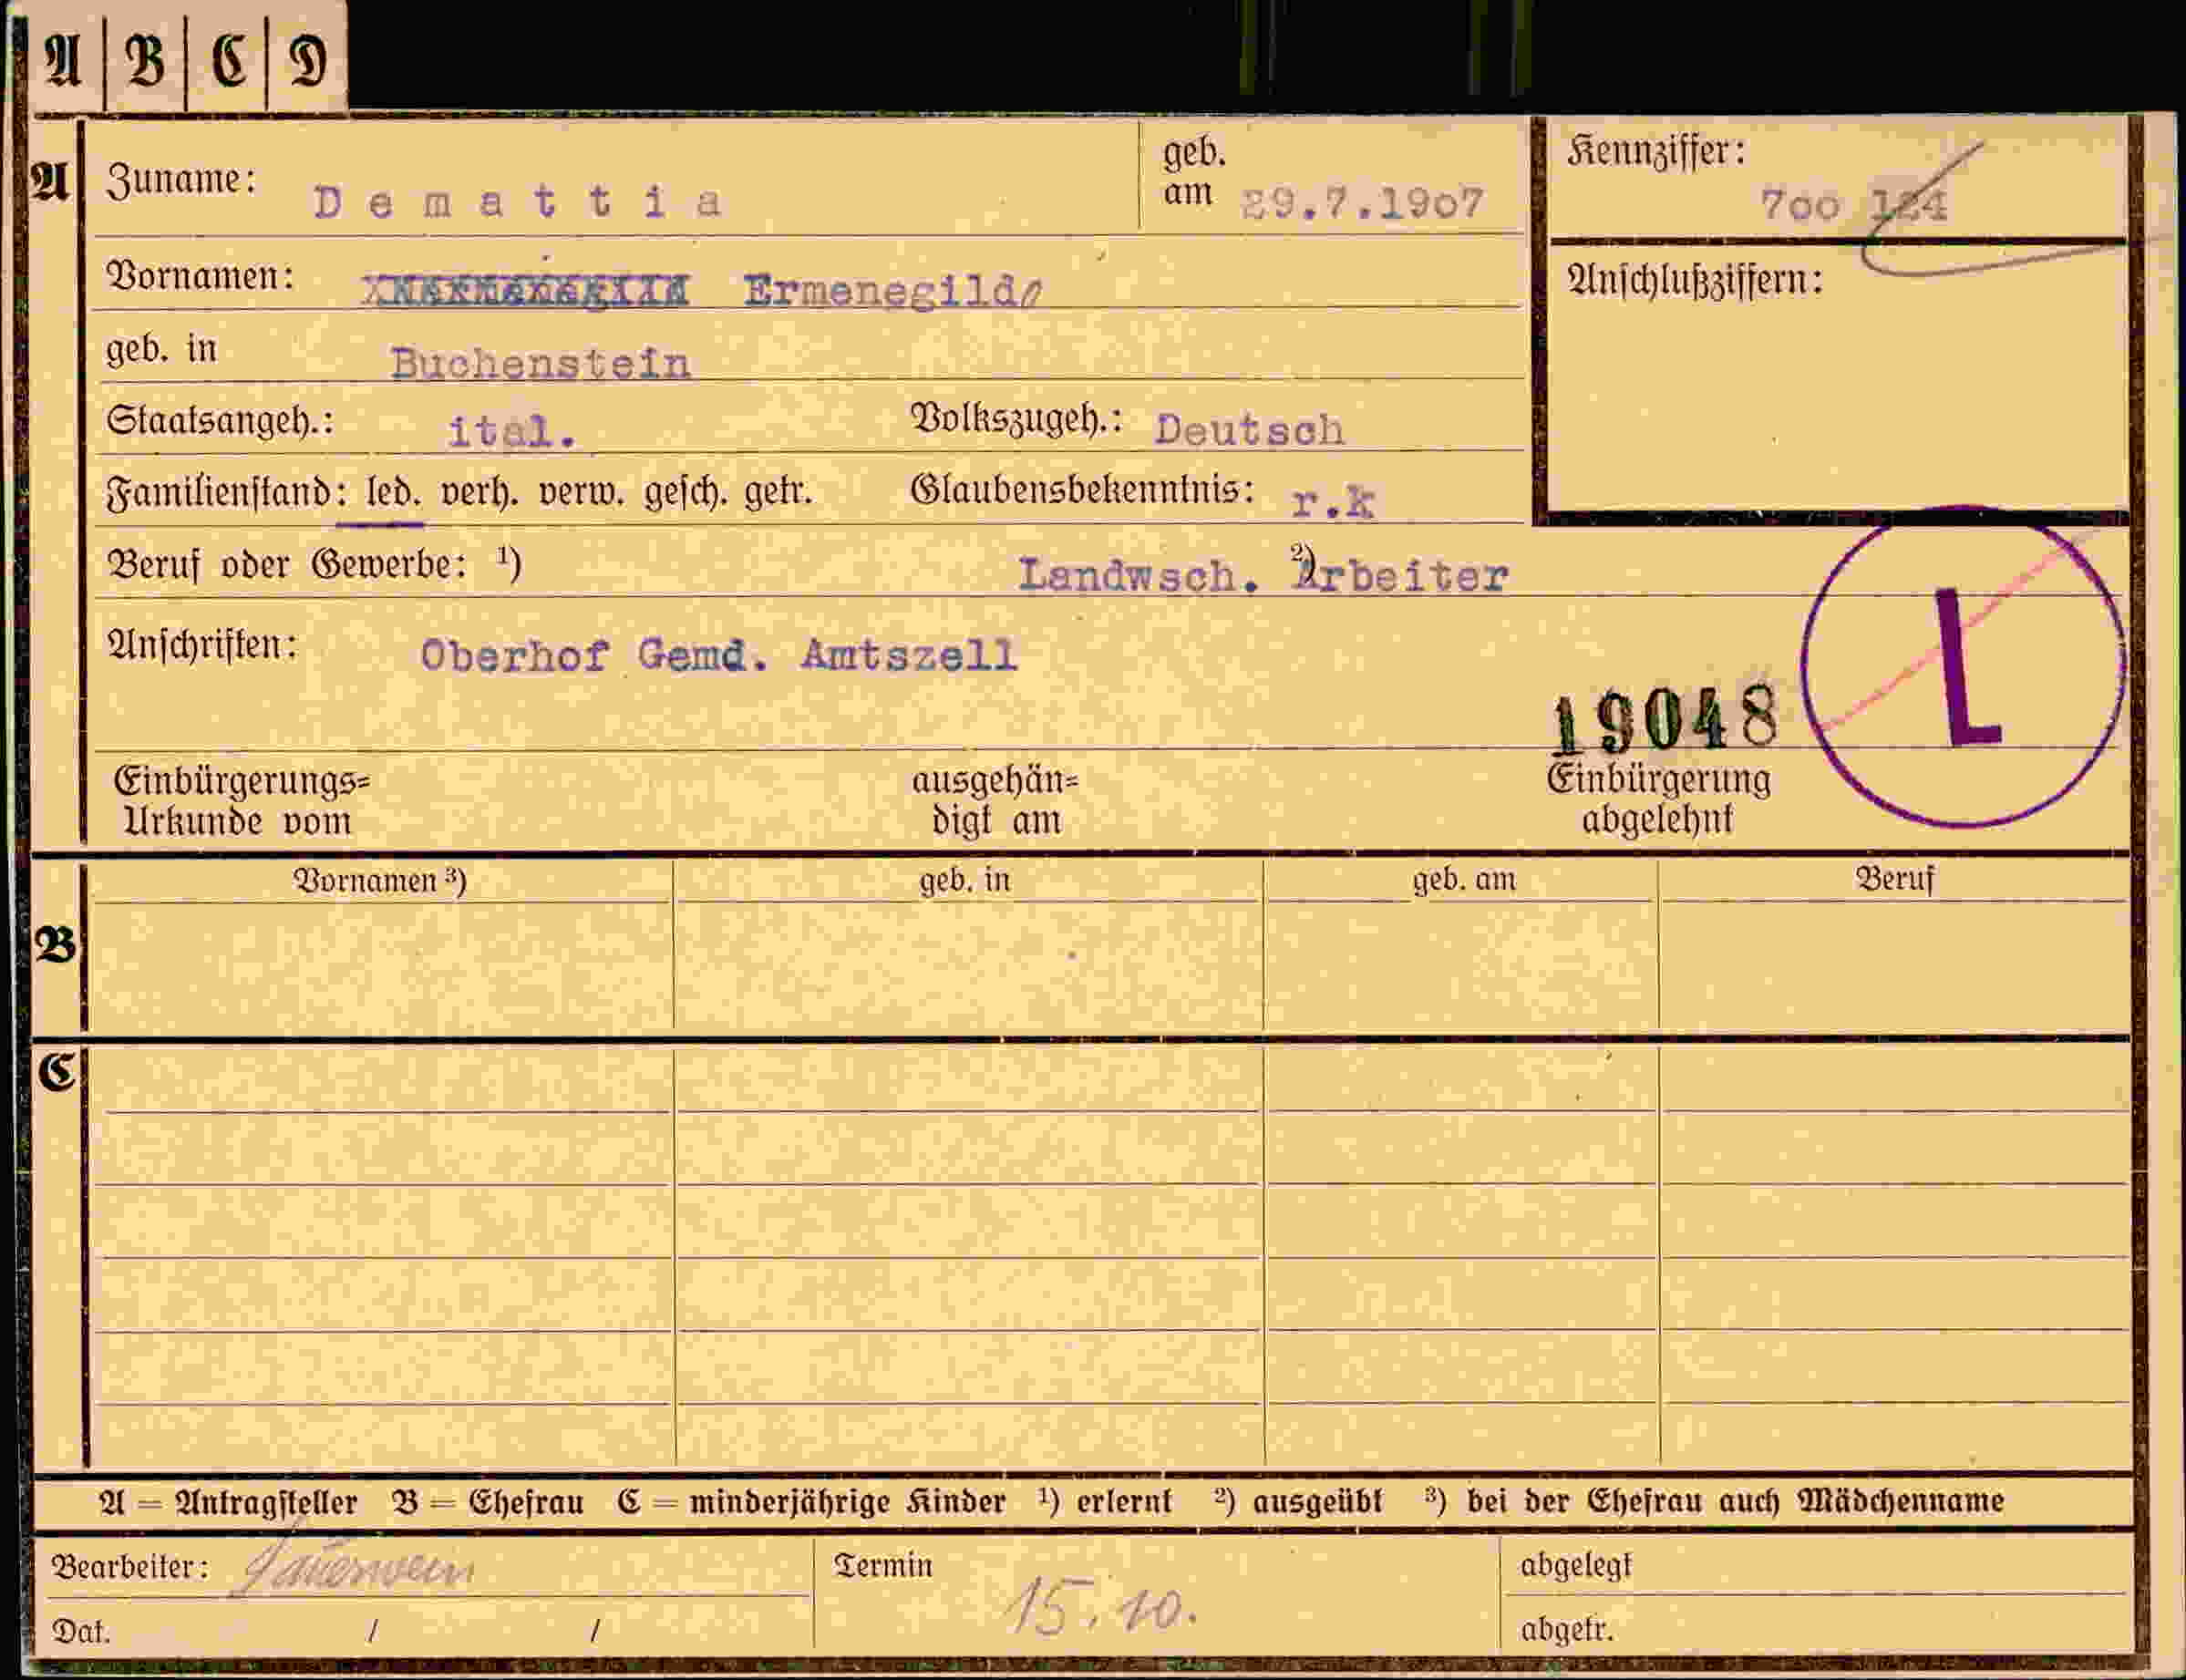 A B C D
A
Zuname: Demattia
geb. am 29.7.1907
Kennziffer: 700 124
Vornamen: Ermenegildo
Anschlußziffern:
geb. in Buchenstein
Staatsangeh.: ital. Volkszugeh.: Deutsch
Familienstand: led. verh. verw. gesch. getr. Glaubensbekenntnis: r.k
Beruf oder Gewerbe: 1) Landwsch. 2) Arbeiter
Anschriften: Oberhof Gemd. Amtszell
19048
L
Einbürgerungs= ausgehän= Einbürgerung
Urkunde vom digt am abgelehnt
Vornamen 3) geb. in geb. am Beruf
B
C
A = Antragsteller B = Ehefrau C = minderjährige Kinder 1) erlernt 2) ausgeübt 3) bei der Ehefrau auch Mädchenname
Bearbeiter: Sauerwein Termin 15.10. abgelegt
Dat. / / abgetr.